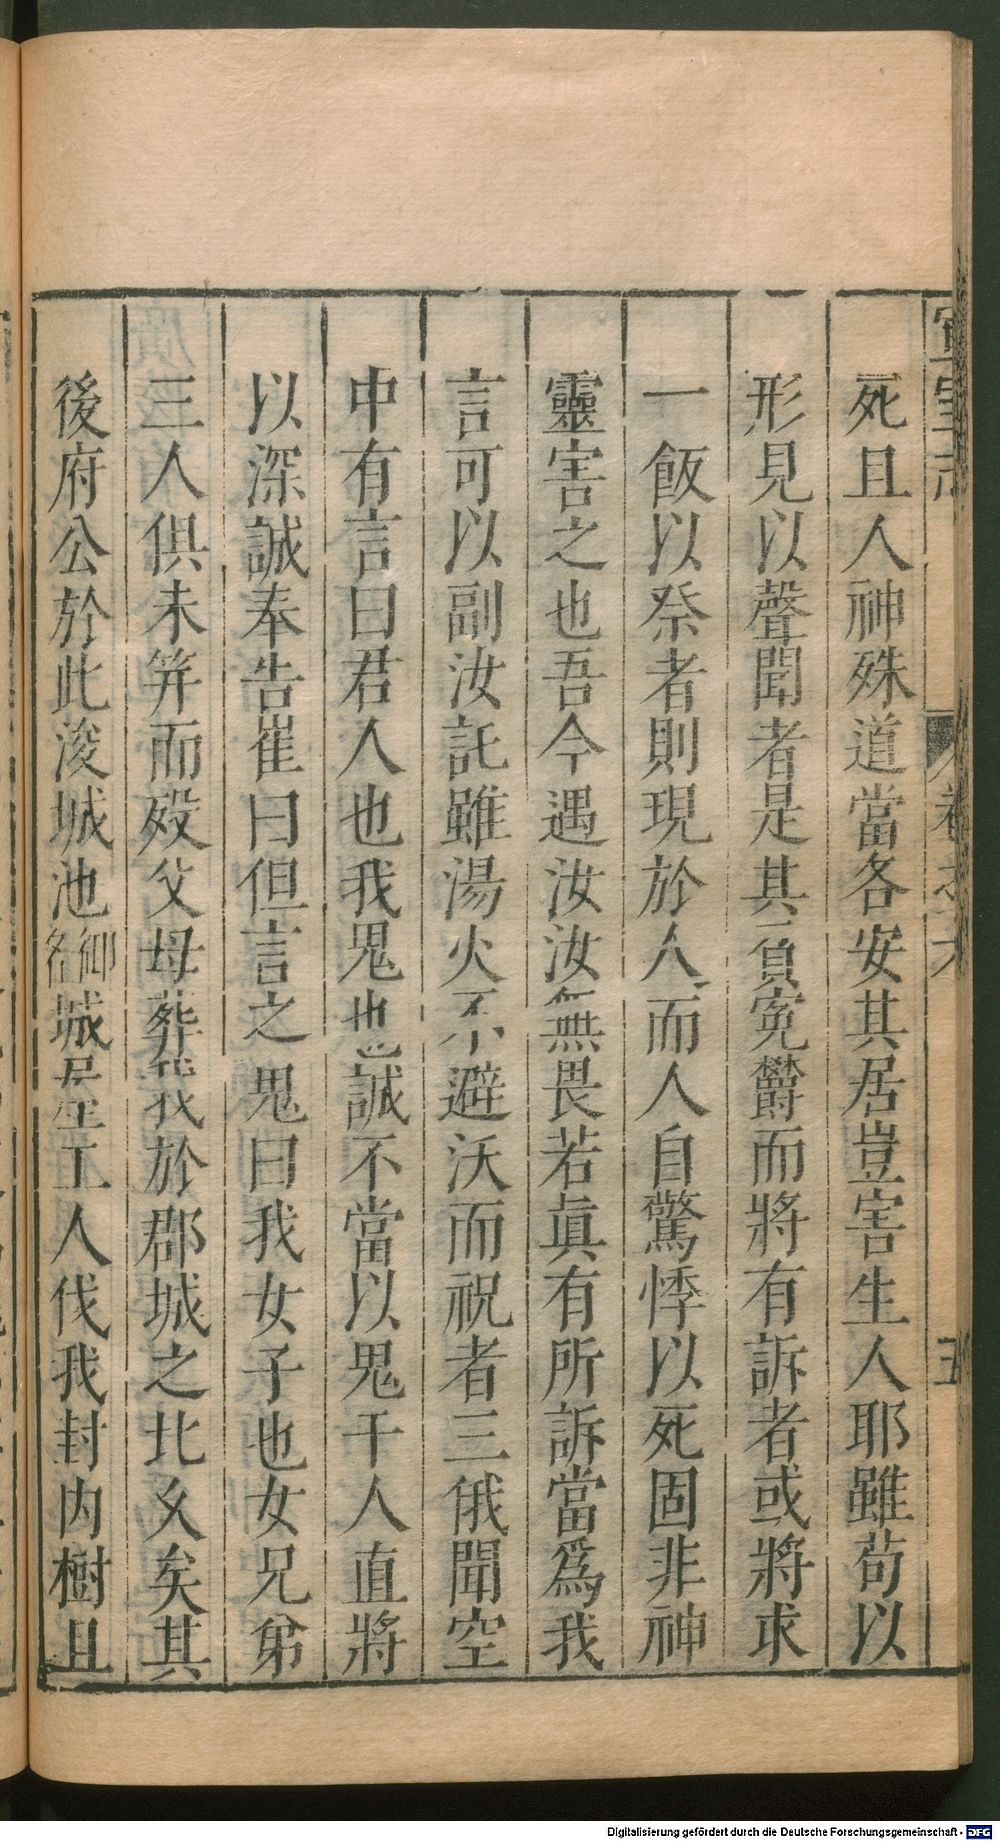 死且人神殊道當各安其居豈害生人耶雖苟以
形見以聲聞者是其負寃欝而將有訴者或將求
一飯以祭者則現於人而人自驚悸以死固非神
靈害之也吾今遇汝汝無畏若眞有所訴當爲我
言可以副汝託雖湯火不避沃而祝者三俄聞空
中有言曰君人也我鬼也誠不當以鬼干人直將
以深誠奉告崔曰但言之鬼曰我女子也女兄弟
三人俱未笄而殁父母葬我於郡城之北乆矣其
後府公於此浚城池御名城屋工人伐我封内樹且
宣室志
卷之六
五
Digitalisierung gefördert durch die Deutsche Forschungsgemeinschaft - DFG